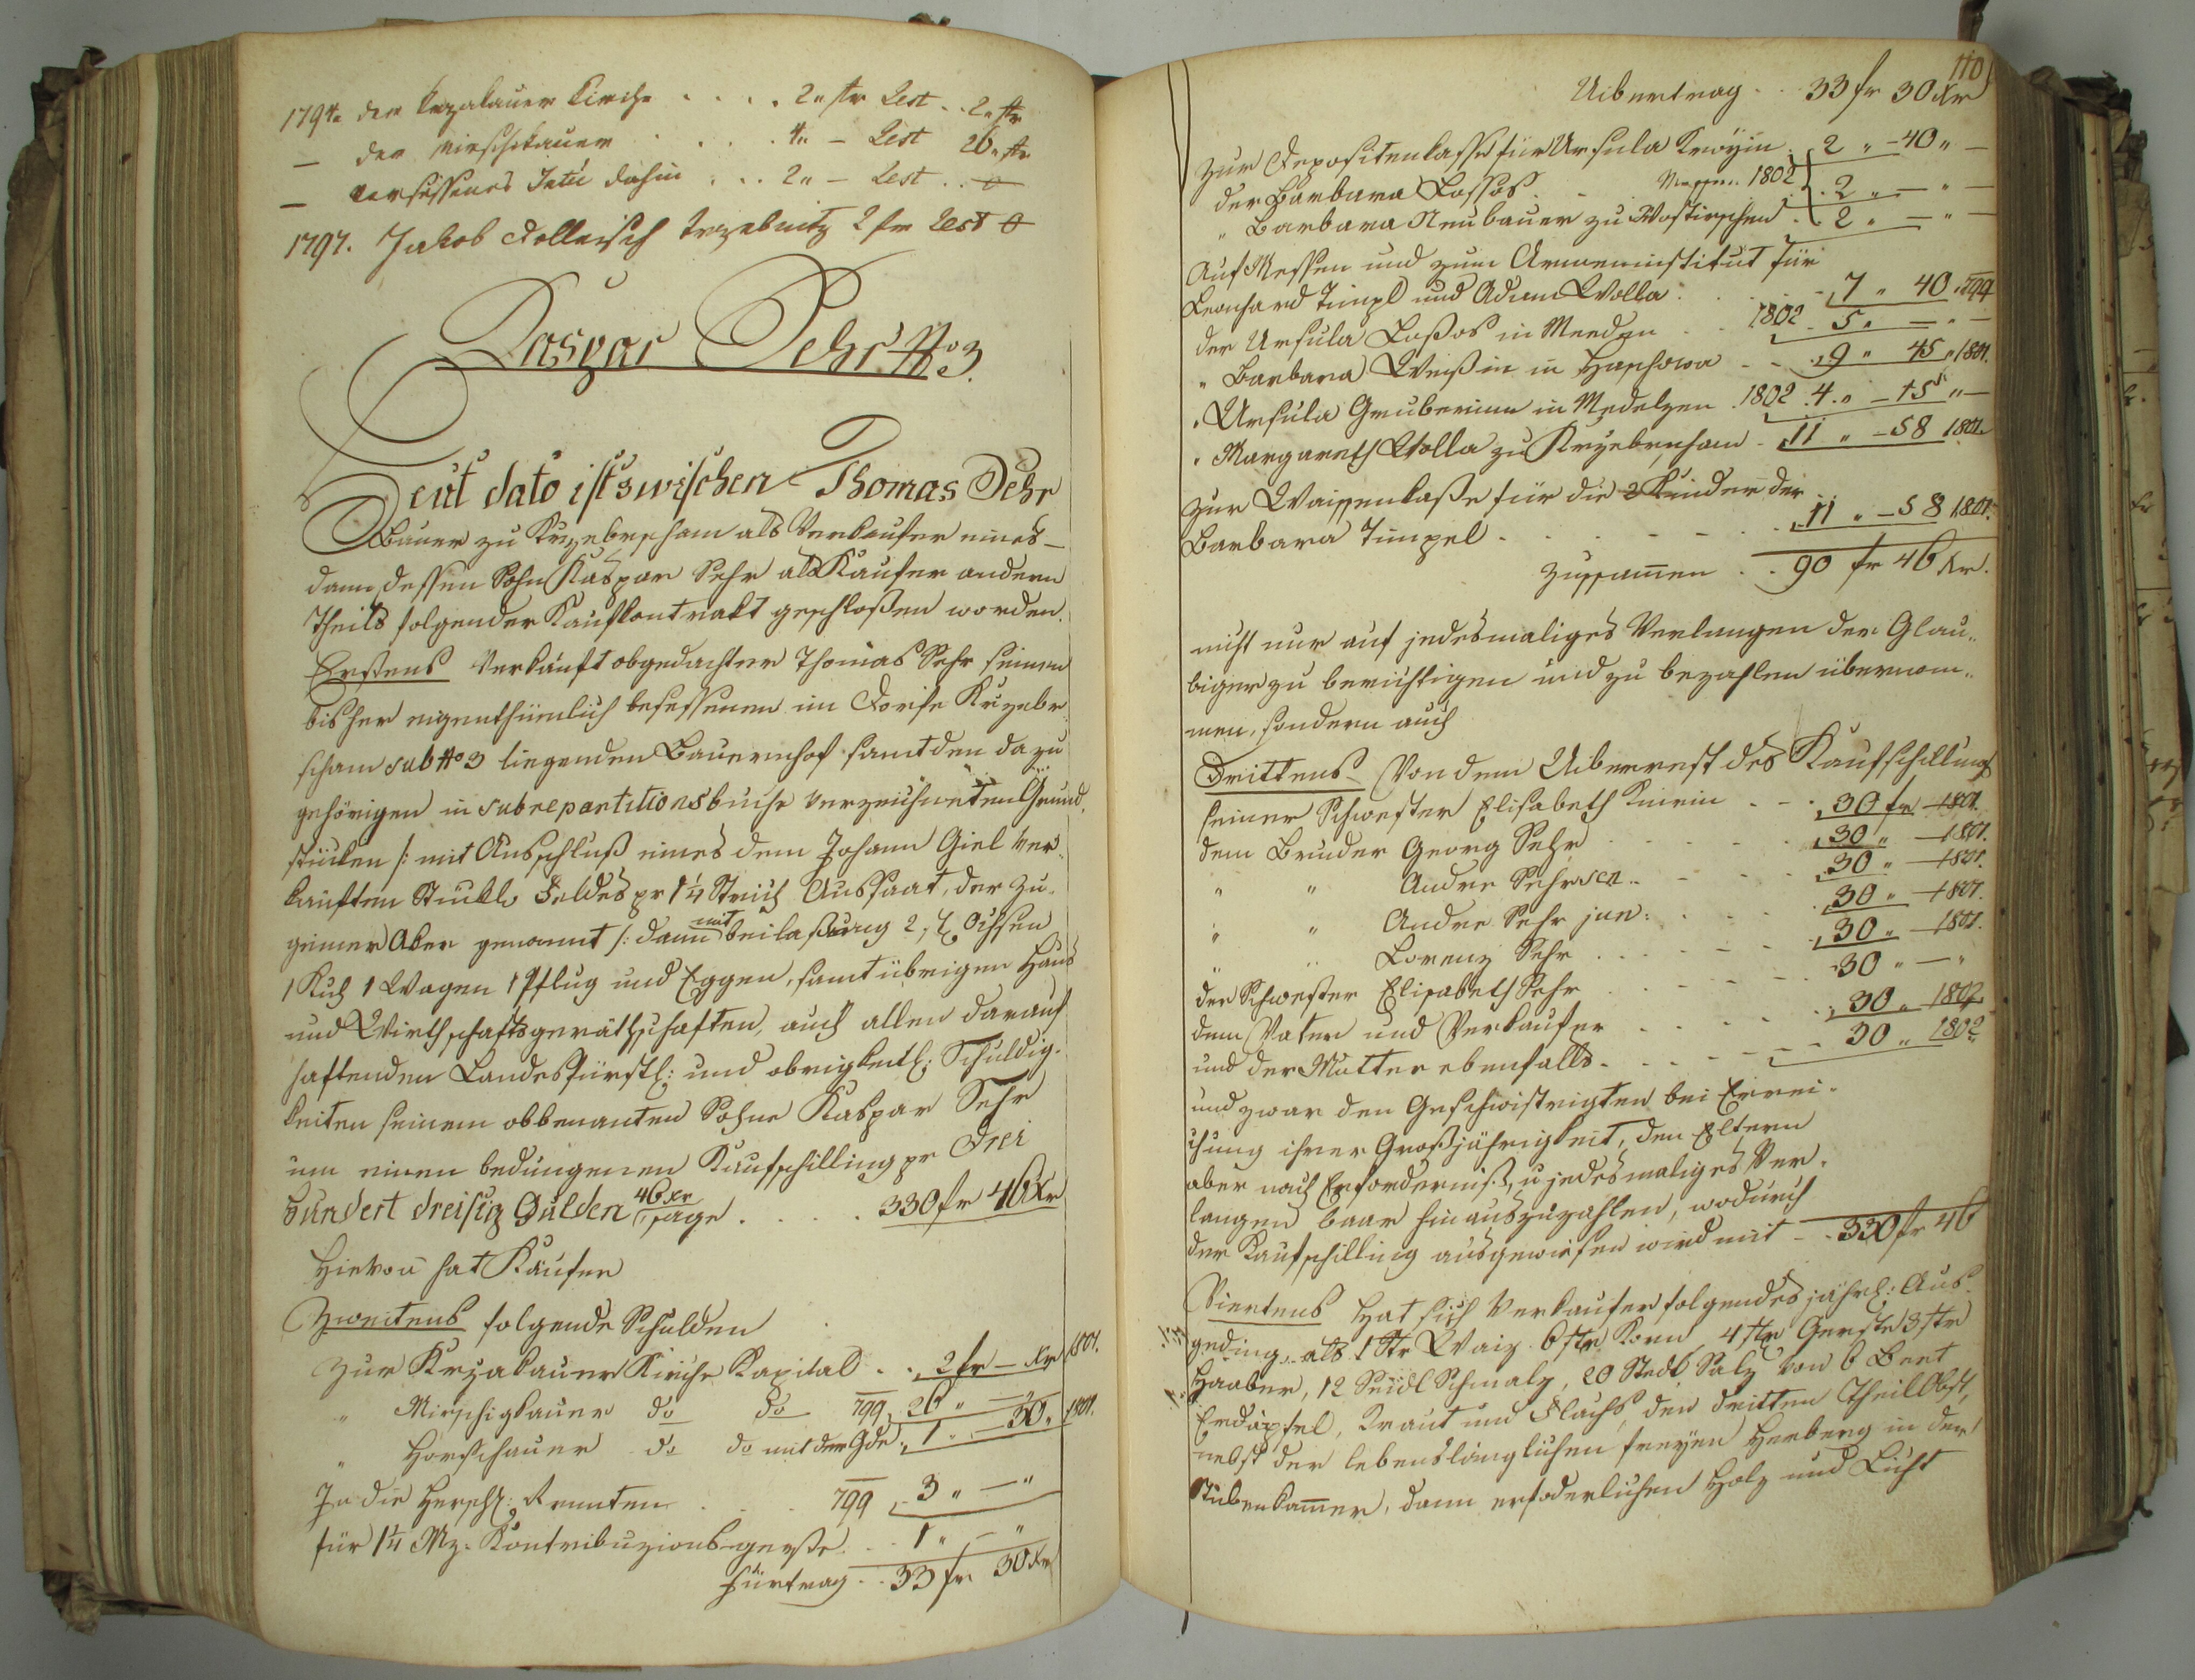 1794. der Krzakauer Kirche . . . . 2 " fr Rest . . 2 " fr
— der Mirschikauer . . . . 4 " — Rest 26 " fr
— versessenes Jntee dahin . . . 2 " — Rest . . 0
1797. Jakob Kolleisch Trzebnitz 2 fr Rest 0
Kaspar Sehr No 3.
Heut dato ist zwischen Thomas Sehr
Bauer zu Krzebrscham als Verkaufer eines —
dann dessen Sohn Kaspar Sehr als Kaufer andern
Theils folgender Kaufkontrakt geschloßen worden.
Erstens Verkauft obgedachter Thomas Sehr seinen
bisher eigenthümlich besessenen im Dorfe Krzebr
scham sub No 3 liegenden Bauernhof samt den dazu
gehörigen in Subrepartitionsbuche verzeichneten Grund
stücken /: mit Ausschluß eines dem Johann Giel ver
kauften Stückls Feldes pr 1 1/4 Strich Aussaat, der zu
genannt :/ dann mit beilaßung 2 Ochsen
1 Kuh 1 Wagen 1 Pflug und Eggen, samt übrigen Haus
und Wirthschaftsgeräthschaften, auch allen darauf
haftenden Landesfürstl: und obrigkeitl: Schuldig-
keiten seinem obbenanten Sohne Kaspar Sehr
um einen bedungenen Kaufschilling pr Drei
Hundert dreisig Gulden 46 Xr sage . . . . 330 fr 46 Xr
Hievon hat Käufer
Zweitens folgende Schulden
Zur Krzakauer Kirche Kapital . . 2 fr — Xr 1801.
" Mirschigkauer do do 799 26 " —
" Horschauer do do mit der Gde " 1 " — 30 " 1801.
Jn die Herschl: Renten . . . 799 3 " — "
für 1 1/4 Mz. Kontribuzions-gerste . . 1 " — "
Fürtrag . . 33 fr 30 Xr
110
Uibertrag . . 33 fr 30 Xr
Zur Depositenkasse für Ursula . 2 " — 40 " —
der Barbara Lossos . - 1802 . 2 " — " —
" Barbara Neubauer zu Wostirschen . 2 " — " —
Auf Messen und zum Armeninstitut für
Leonhard Timpl und Adam Wolla . . . . 7 " 40 " 799
der Ursula Loßos in Meeden . . 1802 . 5 " — " —
" Barbara Weiß in in Haschowa - - 9 " 45 " 1801.
" Ursula Gruberinn in Medelzen 1802 . 4 " — 15 " —
" Margareth Wolla zu Krzebrscham - 11 " — 58 1801.
Zur Waisenkaße für die 2 Kinder der
Barbara Timpel . . . . . 11 " — 58 1801.
Zusammen . . 90 fr 46 Xr.
nicht nur auf jedesmaliges Verlangen der Glau-
biger zu berichtigen und zu bezahlen übernom-
men, sondern auch
Drittens Von dem Uiberrest des Kaufschillings
seiner Schwester Elisabeth . . . 30 fr 1801.
dem Bruder Georg Sehr . . . . . 30 " — 1801.
" " Andre Sehr sen. . . . 30 " — 1801.
" " Andre Sehr jun: . . . 30 " — 1801.
" " Lorenz Sehr . . . . 30 " — 1801.
der Schwester Elisabeth Sehr . . . . 30 " — "
dem Vater und Verkaufer . . . . 30 " 1802
und der Mutter ebenfalls . . . . . 30 " 1802
und zwar den Geschwistrigten bei Errei-
chung ihrer Großjährigkeit, den Eltern
aber nach Erforderniß, u jedesmaliges Ver-
langen baar hinauszuzahlen, wodurch
der Kaufschilling ausgewiesen wird mit - . 330 fr 46
Viertens Hat sich Verkaufer folgendes jährl: Aus-
geding, als 1 Str Waiz 6 Str Korn 4 Str Gerste 3 Str
Haaber, 12 Seidl Schmalz, 20 Salz von 6 Beet
Erdäpfel, Kraut und Flachs, den dritten Theil Obst,
nebst der lebenslänglichen freyen Herberg in der
Stubenkammer, dann erfoderlichen Holz und Licht